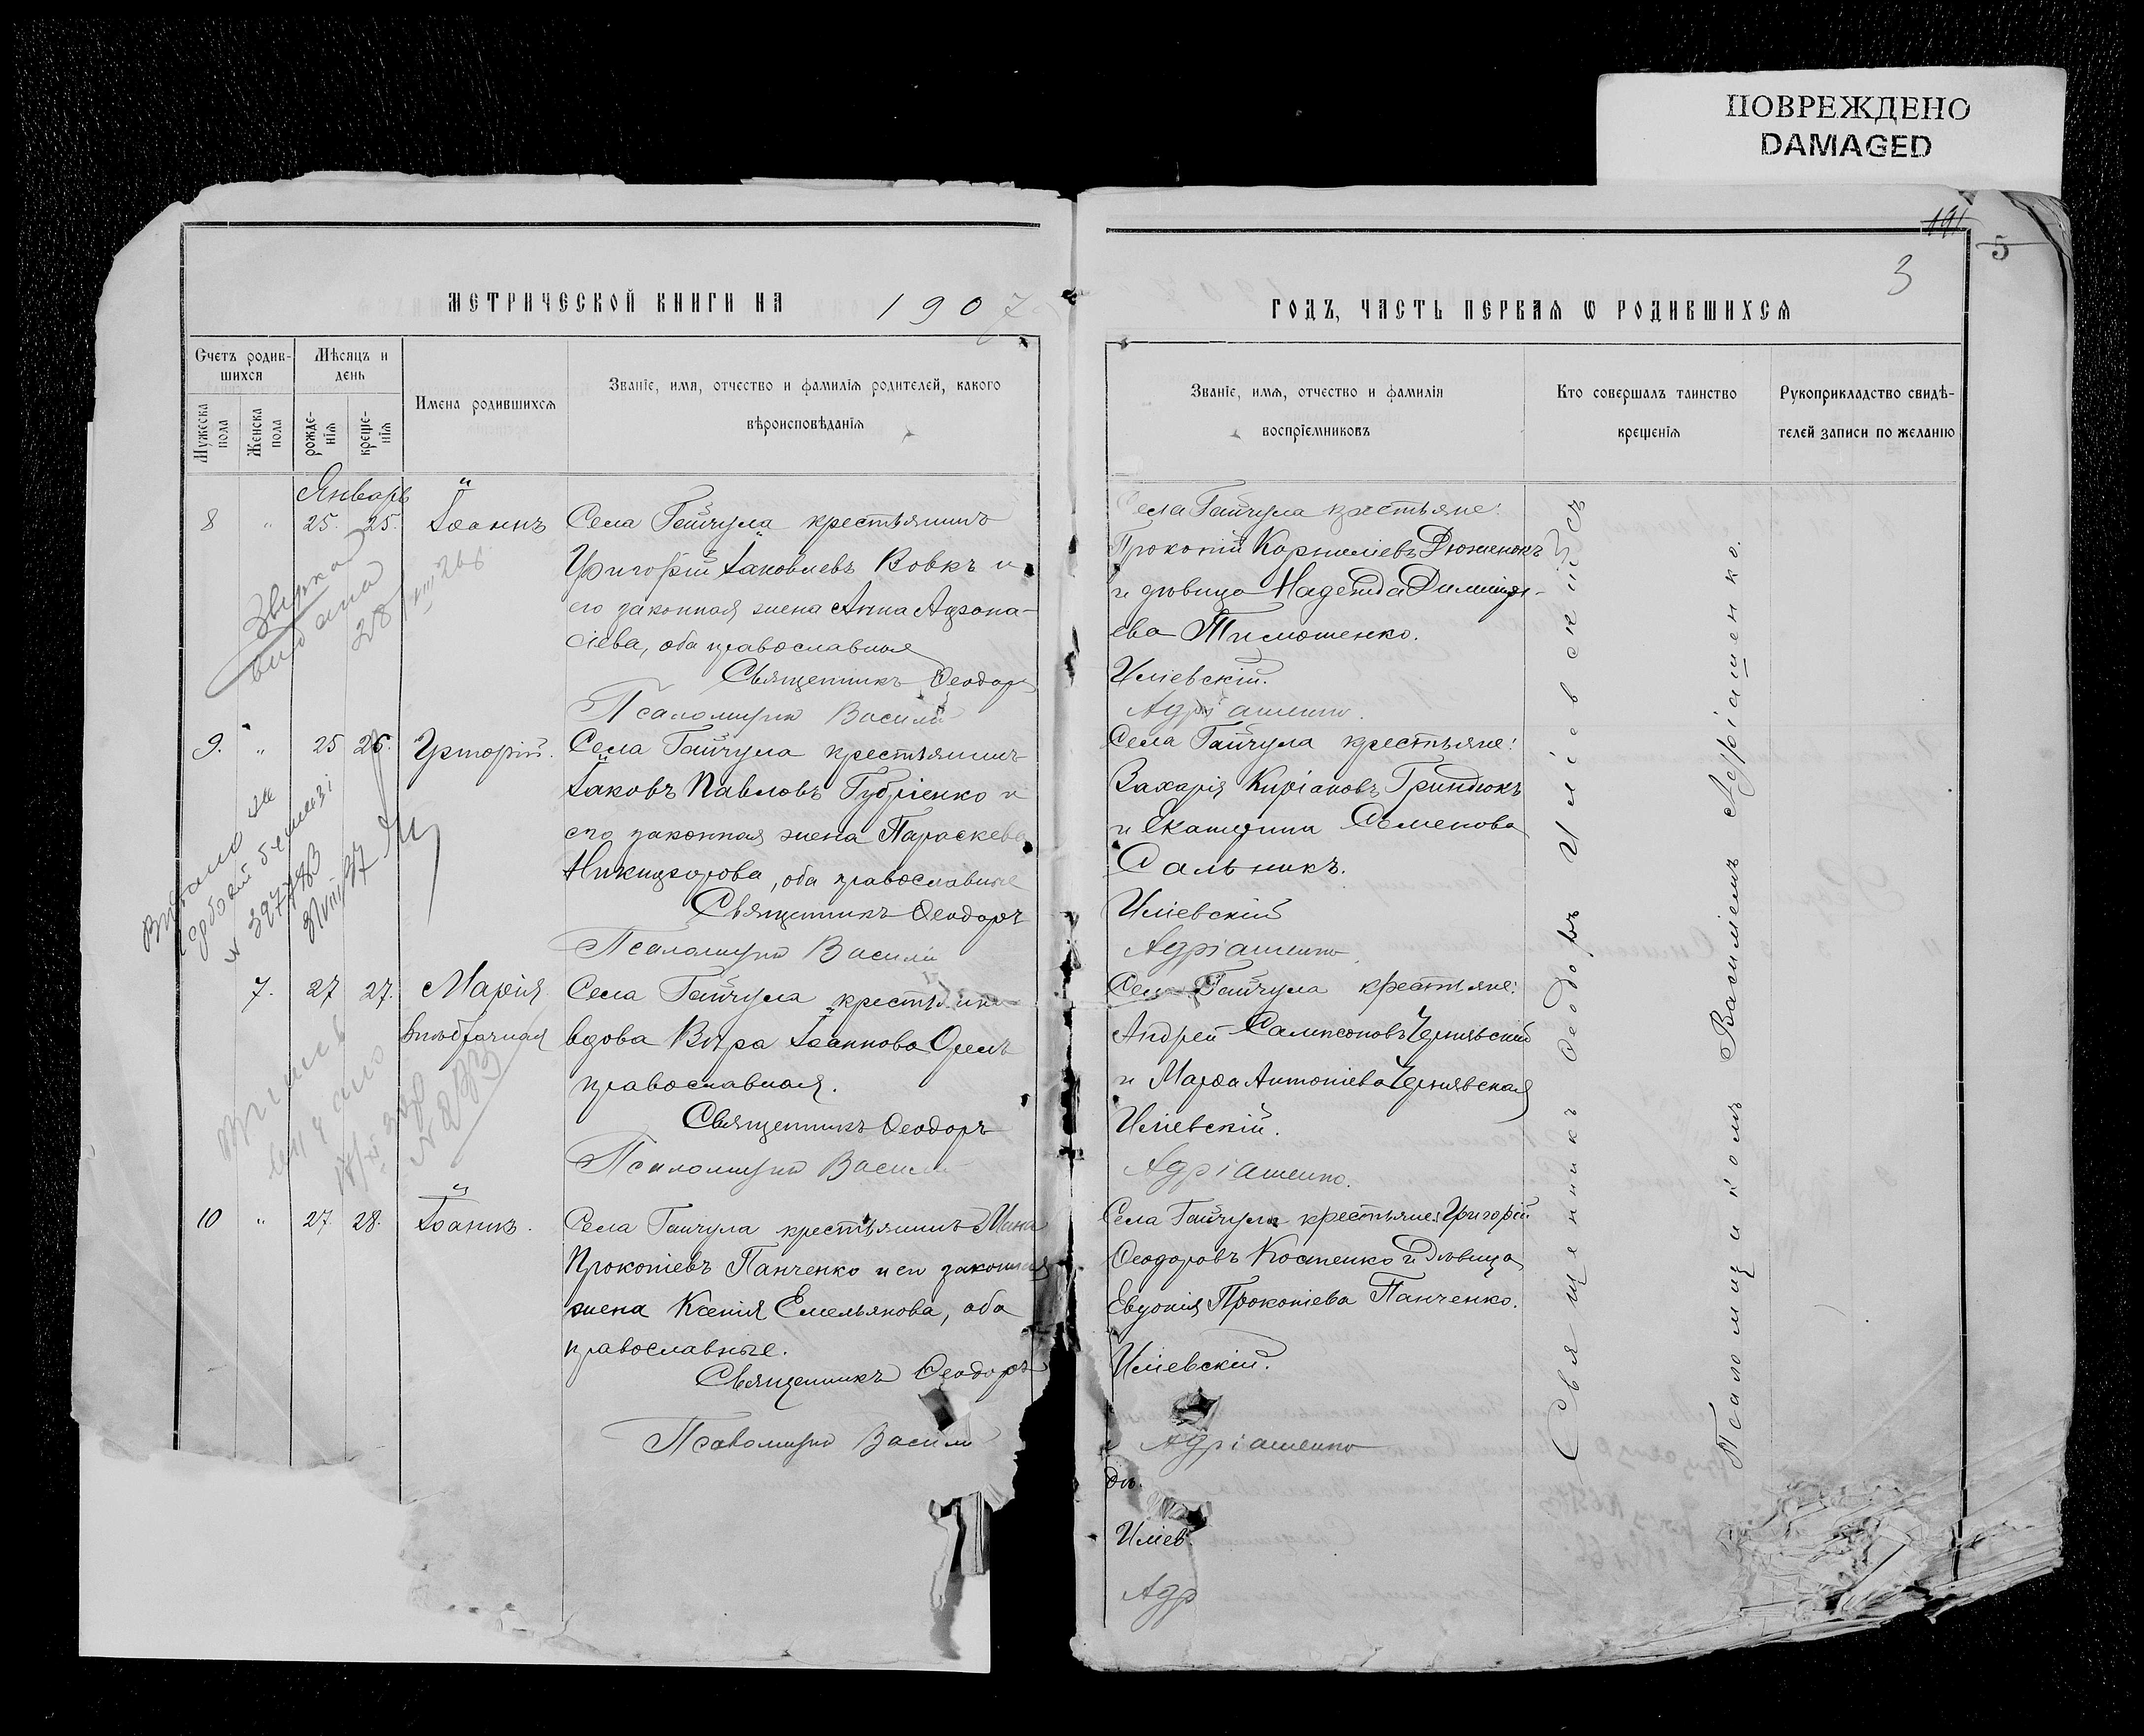 ПОВРЕЖДЕНО
DAMAGED
191
5
3
МЕТРИЧЕСКОЙ КНИГИ НА 1907
ГОДЪ, ЧАСТЬ ПЕРВАЯ Ѡ РОДИВШИХСЯ
Счетъ родив-
шихся
Мѣсяцъ и
день
Мужеска
пола
Женска
пола
рожде-
нія
креще-
нія
Имена родившихся
Званіе, имя, отчество и фамилія родителей, какого
вѣроисповѣданія
Званіе, имя, отчество и фамилія
воспріемниковъ
Кто совершалъ таинство
крещенія
Рукоприкладство свидѣ-
телей записи по желанію
Январь
8 " 25. 25. Іоаннъ
Села Гайчула крестьянинъ
Григорій Іаковлевъ Вовкъ и
его законная жена Анна Аѳана-
сіева, оба православныя
Священникъ Ѳеодоръ
Псаломщик Василий
Села Гайчула крестьяне:
Прокопій Корниліевъ Дюженокъ
и дѣвица Надежда Димитрі-
ева Тимошенко.
Иліевскій.
Адріашенко.
9. " 25 26. Григорій.
Села Гайчула крестьянинъ
Іаковъ Павловъ Губріенко и
его законная жена Параскева
Никифорова, оба православные
Священникъ Ѳеодоръ
Псаломщик Василий
Села Гайчула крестьяне:
Захарія Киріаковъ Гриндюкъ
и Екатерина Семенова
Сальникъ.
Иліевскій
Адріашенко.
7. 27 27. Марія
внѣбрачная
Села Гайчула крестьянка
вдова Вѣра Іоаннова Орелъ
православная.
Священникъ Ѳеодоръ
Псаломщик Василий
Села Гайчула крестьяне:
Андрей Сампсоновъ Чернявскій
и Марѳа Антоніева Чернявская
Иліевскій.
Адріашенко.
10 " 27. 28. Іоаннъ.
Села Гайчула крестьянинъ Мина
Прокопіевъ Панченко и его законная
жена Ксенія Емельянова, оба
православные.
Священникъ Ѳеодоръ
Псаломщик Василий
Села Гайчула крестьяне: Григорій
Ѳеодоровъ Костенко и дѣвица
Евдокія Прокопіева Панченко.
Иліевскій.
Адріашенко
дѣ.
Иліев
Адр
Священникъ Ѳеодоръ Иліевскій
Псаломщикомъ Василіемъ Адріашенко.